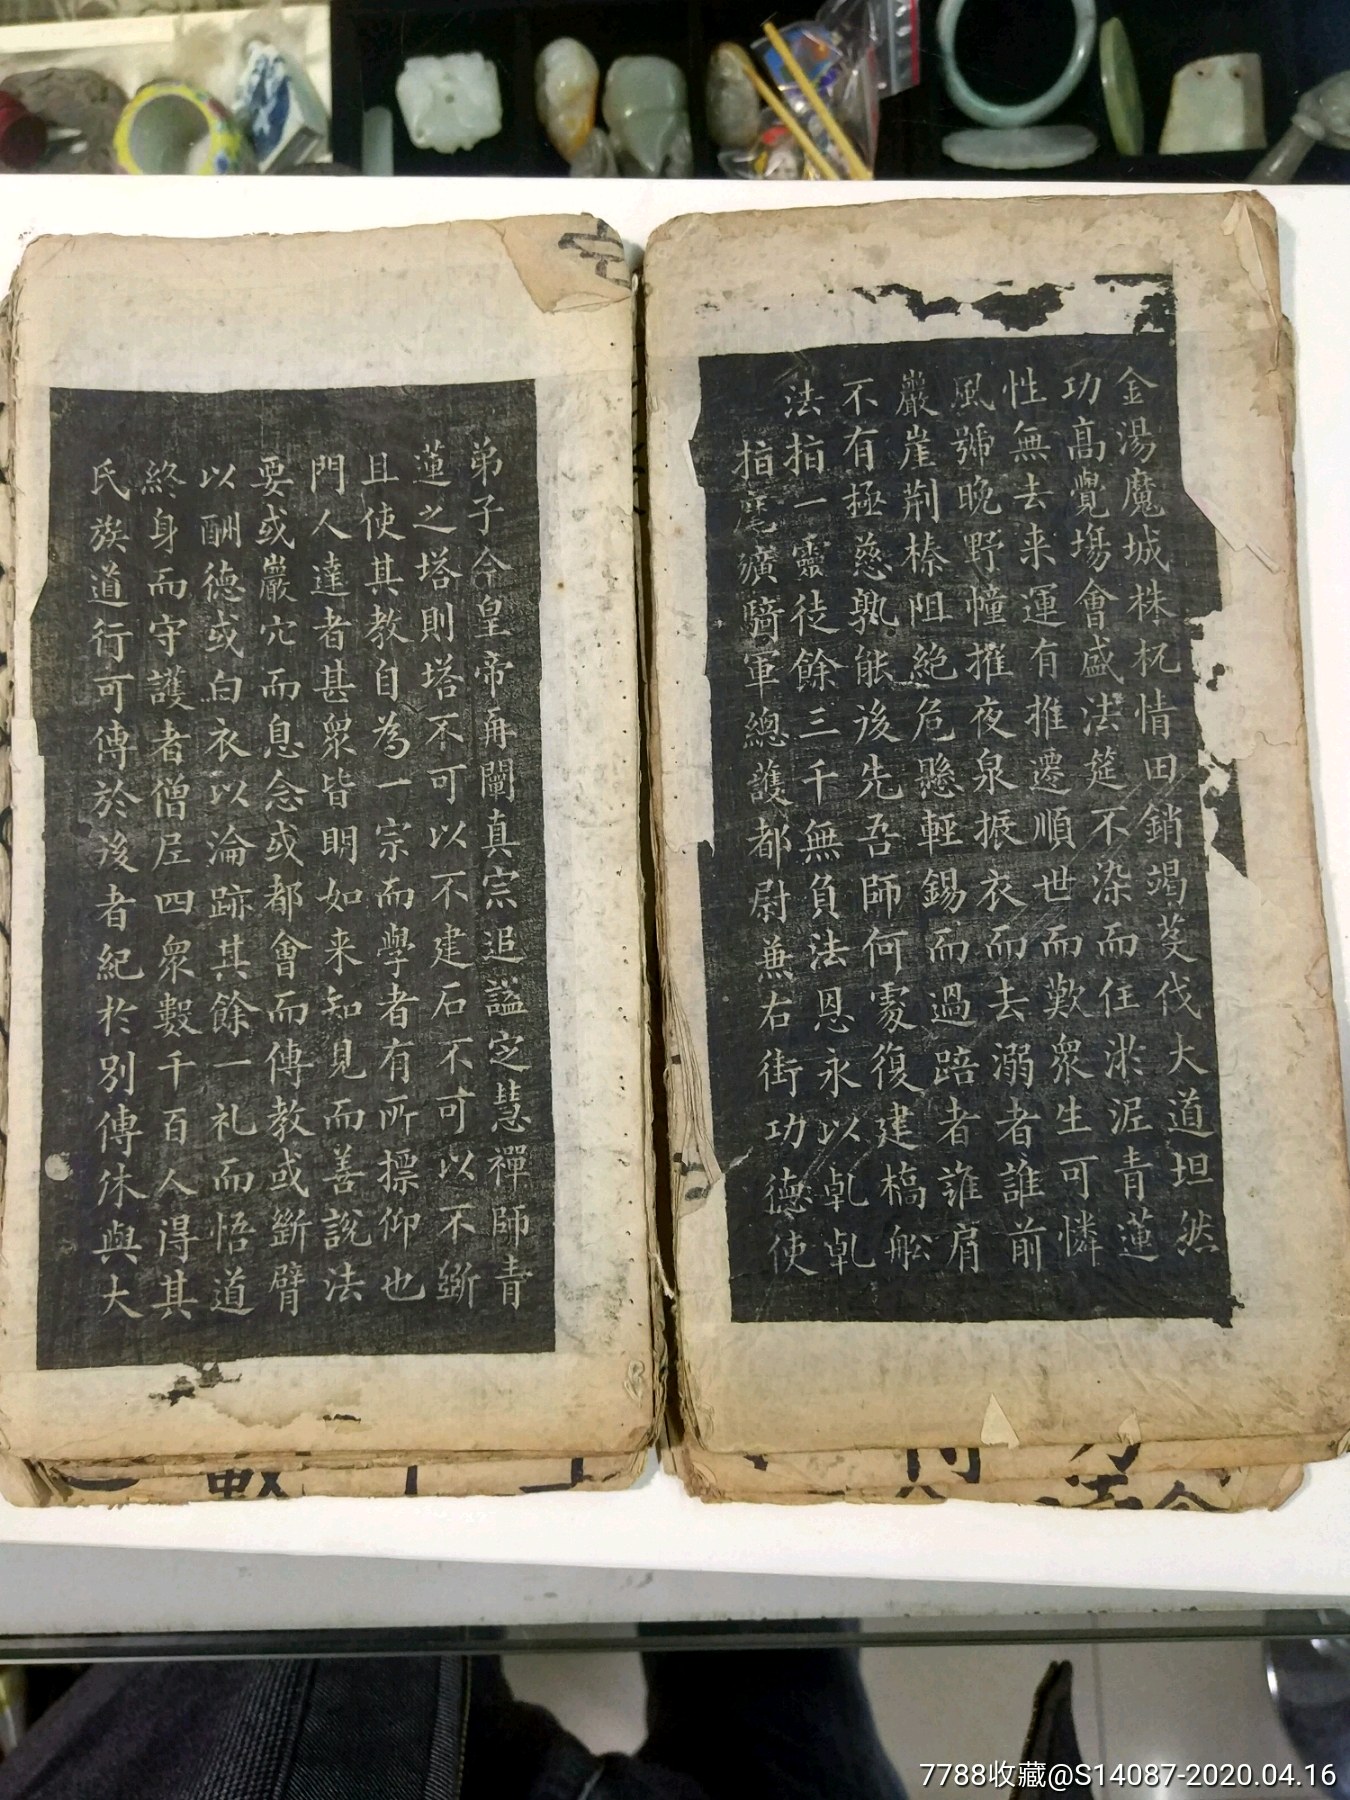 金湯魔城株杌情田銷竭芟伐大道坦然
功高覺場會盛法筵不染而住淤泥青蓮
性無去来運有推遷順世而歎衆生可憐
風號晚野幢摧夜泉振衣而去溺者誰前
巖崖荆榛阻絕危懸輕錫而過踣者誰肩
不有極慈孰能後先吾師何處復建橋舩
法指一靈徒餘三千無負法恩永以乹乹
指麾彍騎軍總護都尉兼右街功德使
弟子今皇帝再闡真宗追謚定慧禪師青
蓮之塔則塔不可以不建石不可以不斲
且使其教自為一宗而學者有所摽仰也
門人達者甚衆皆明如来知見而善說法
要或巖穴而息念或都會而傳教或斷臂
以酬德或白衣以淪跡其餘一礼而悟道
終身而守護者僧尼四衆數千百人得其
氏族道行可傳於後者紀於別傳休與大
7788收藏@S14087-2020.04.16